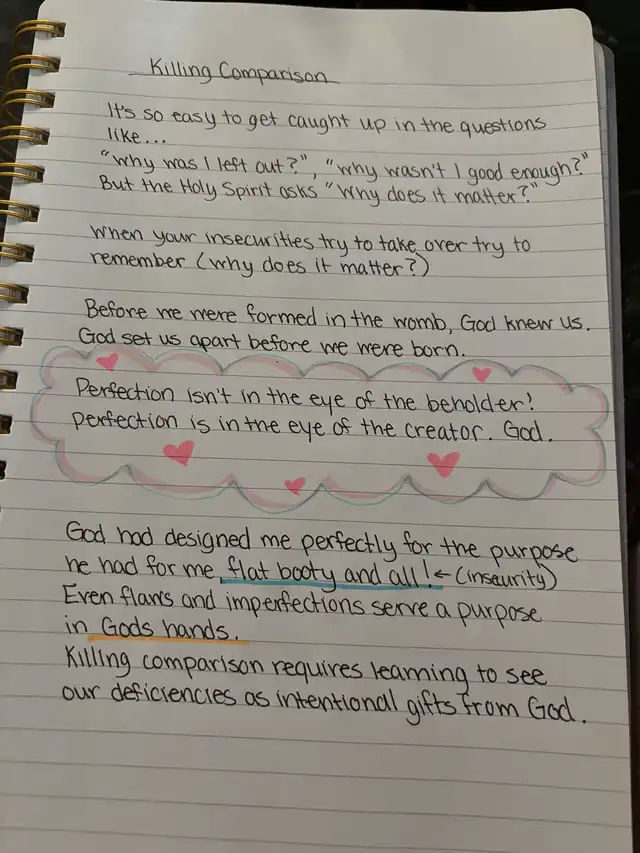 Killing Comparison
It's so easy to get caught up in the questions
like...
"Why was I left out?", "why wasn't I good enough?"
But the Holy Spirit asks "Why does it matter?"
When your insecurities try to take over try to
remember (why does it matter?)
Before we were formed in the womb, God knew us.
God set us apart before we were born.
Perfection isn't in the eye of the beholder!
Perfection is in the eye of the creator. God.
God had designed me perfectly for the purpose
he had for me, flat booty and all! ← (inseurity)
Even flaws and imperfections serve a purpose
in Gods hands.
Killing comparison requires learning to see
our deficiencies as intentional gifts from God.